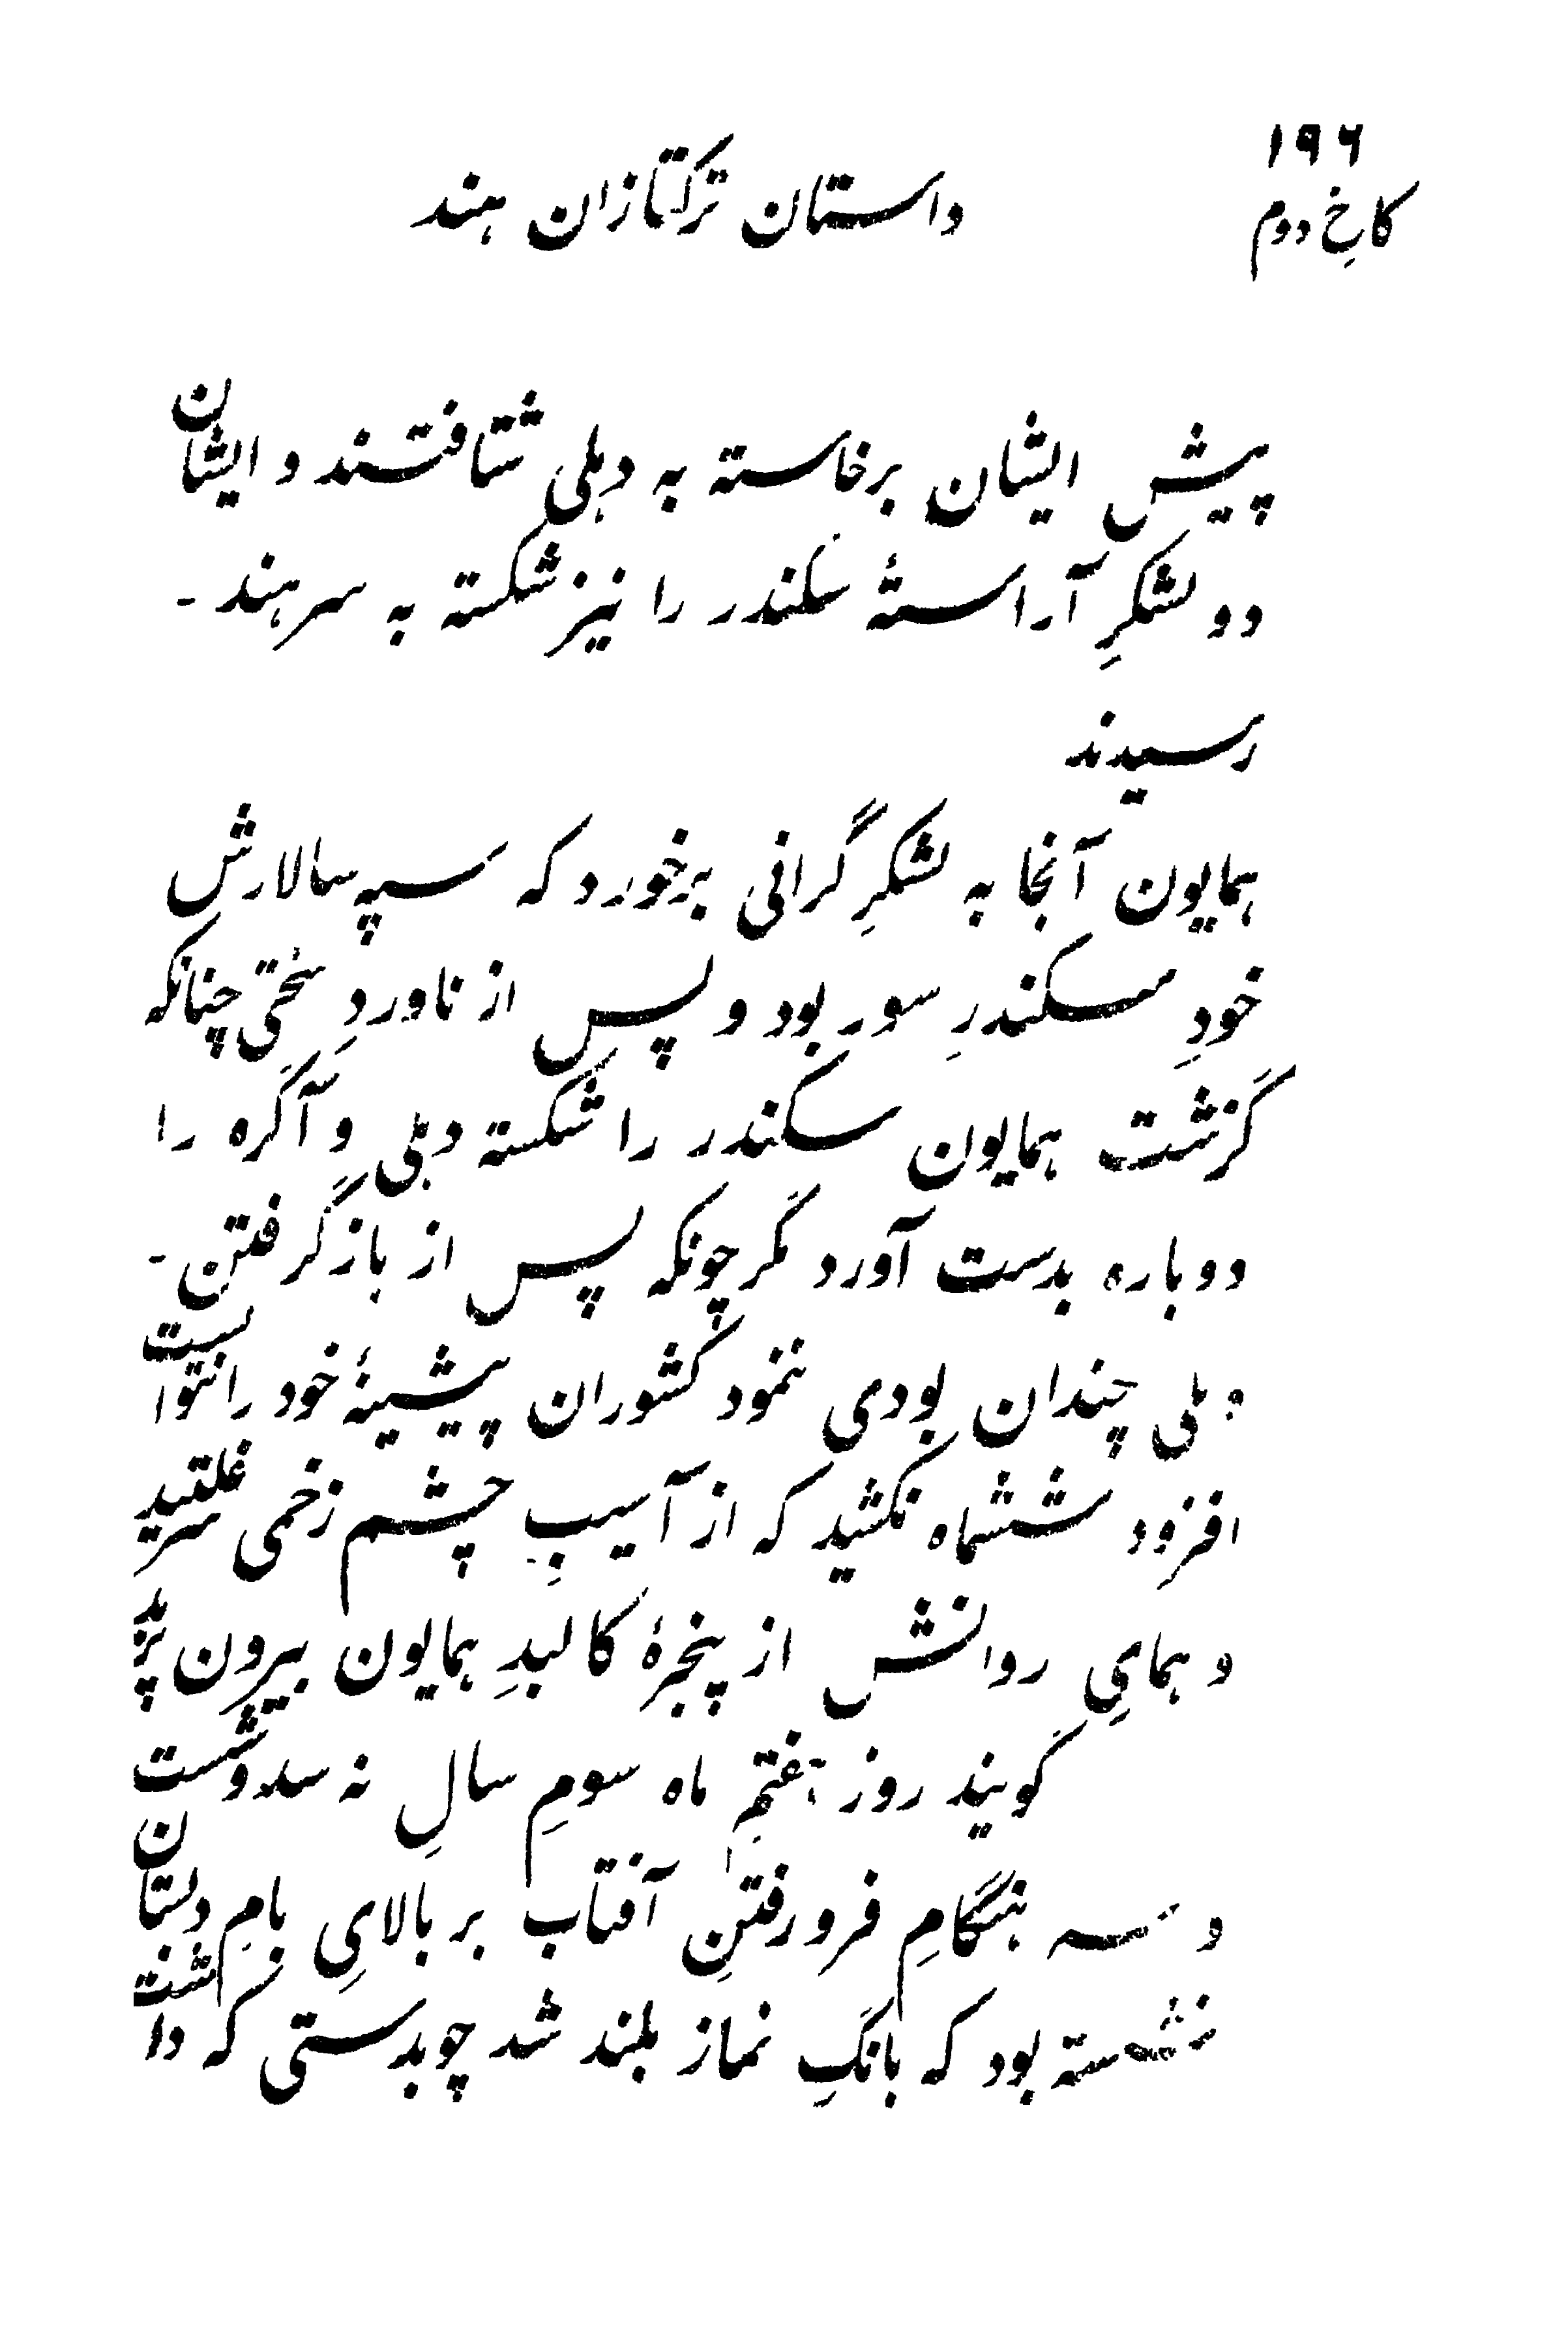 ۱۹۶
کاخِ دوم
داستان ترکتازان هند
پیش ایشان برخاسته به دهلی شتافتند و ایشان
دو لشکرِ آراستهٔ سکندر را نیز شکسته به سرهند -
رسیدند
همایون آنجا به لشکرِ گرانی برخورد که سپه سالارش
خودِ سکندرِ سور بود و پس از ناوردِ سختی چنانکه
گزشت همایون سکندر را شکسته دهلی و آگره را
دوباره بدست آورد مگر چونکه پس از بازگرفتن -
دهلی چندان بودی ننمود کشوران پیشینهٔ خود را نتوانست
افزود ششماه نکشید که از آسیبِ چشم زخمی سر غلتید
و همایِ روانش از پنجرهٔ کالبدِ همایون بیرون پرید
گویند روز هفتمِ ماه سومِ سالِ نه سد و شست
و سه هنگامِ فرورفتنِ آفتاب بر بالایِ بامِ دبستان
نشسته بود که بانگِ نماز بلند شد چوبدستی که داشت